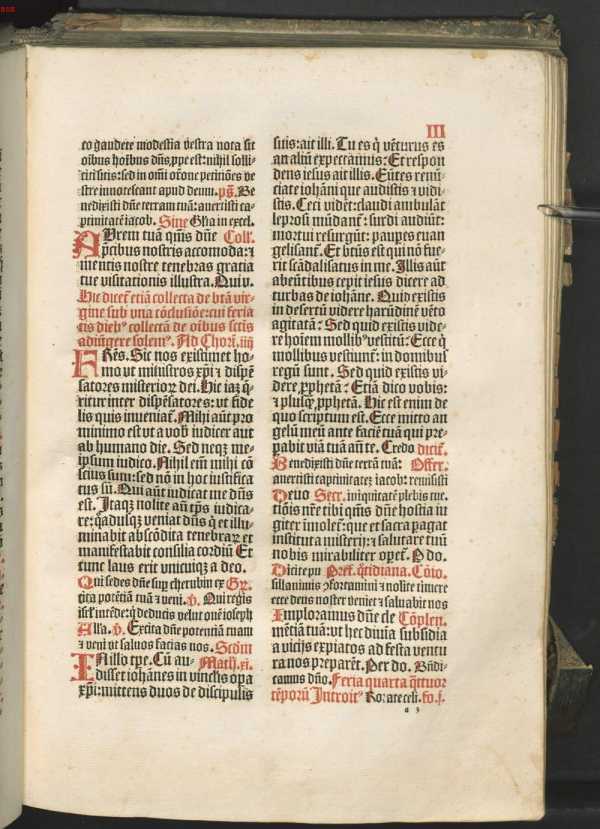 III
to gaudete modestia vestra nota sit
oībus hoībus dñs ꝓpe est: nihil solli-
citi sitis: sed in om̄i orōne petitiōes ve
stre innotescant apud deum. ps̄. Be
nedixisti dñe terram tuā: auertisti ca-
ptiuitatē iacob. Sine Gl̄ia in excel.
AUrem tuā q̄ms dñe Coll'.
p̄cibus nostris accomoda: ⁊
mentis nostre tenebras gratia
tue visitationis illustra. Qui v.
Hic dicet̄ etiā collecta de btā vir-
gine sub vna cōclusiōe: cui feria
tis dieb⁹ collectā de oībus sctīs
adiūgere solem⁹. Ad Chorī. iiij
FRēs. Sic nos existimet ho-
mo vt ministros xp̄i ⁊ dispē
satores misterioꝝ dei. Hic iaꝫ q̄-
ritur inter dispēsatores: vt fide
lis quis inueniat̄. Mihi aūt pro
minimo est vt a vob̄ iudicer aut
ab humano die. Sed neqꝫ me-
ip̄sum iudico. Nihil em̄ mihi cō
scius sum: sed nō in hoc iustifica
tus sū. Qui aūt iudicat me dñs
est. Itaqꝫ nolite añ tp̄s iudica-
re: q̄adusqꝫ veniat dñs q̄ et illu-
minabit abscōdita tenebraꝝ et
manifestabit consilia cordiū Et
tunc laus erit vnicuiqꝫ a deo.
Qui sedes dñe sup̄ cherubin ex Gr̄.
cita potētiā tuā ⁊ veni. v̄. Qui regis
isrl̄ intēde: q̄ deducis velut ouē ioseph
Alla. v̄. Excita dñe potentiā tuam
⁊ veni vt saluos facias nos. Scdm
IN illo tp̄e. Cū au- Math. xi.
disset iohānes in vincl̄is opa
xp̄i: mittens duos de discipulis
suis: ait illi. Tu es q̄ vēturus es
an aliū expectamus: Et respon
dens iesus ait illis. Eūtes renū-
ciate iohāni que audistis ⁊ vidi-
stis. Ceci vidēt: claudi ambulāt
leprosi mūdant̄: surdi audiūt:
mortui resurgūt: paupes euan
gelisant̄. Et btūs est qui nō fue-
rit scādalisatus in me. Illis aūt
abeūtibus cepit iesus dicere ad
turbas de iohāne. Quid existis
in desertū videre harūdinē vēto
agitatā: Sed quid existis vide-
re hoīem mollib⁹ vestitū: Ecce q̄
mollibus vestiunt̄: in domibus
regū sunt. Sed quid existis vi-
dere ꝓphetā: Etiā dico vobis:
⁊ plusqꝫ ꝓphetā. Hic est enim de
quo scriptum est. Ecce mitto an
gelū meū ante faciē tuā qui pre-
pabit viā tuā añ te. Credo dicit̄.
Benedixisti dñe terrā tuā: Offer.
auertisti captiuitateꝫ iacob: remisisti
Deuo Secr. iniquitatē plebis tue.
tiōis nr̄e tibi q̄ms dñe hostia iu
giter īmolet̄: que et sacra pagat
instituta misterij: ⁊ salutare tuū
no bis mirabiliter opet̄. P do.
Dicite pu Pref. q̄tidiana. Cōio.
sillanimis ꝯfortamini ⁊ nolite timere
ecce deus noster veniet ⁊ saluabit nos
Imploramus dñe cle Cōplen.
mētiā tuā: vt hec diuia subsidia
a vicijs expiatos ad festa ventu
ra nos preparēt. Per do. Bn̄di-
camus dño. Feria quarta q̄ttuor
tēporū Introit⁹ Rorate celi. fo. j.
a 3